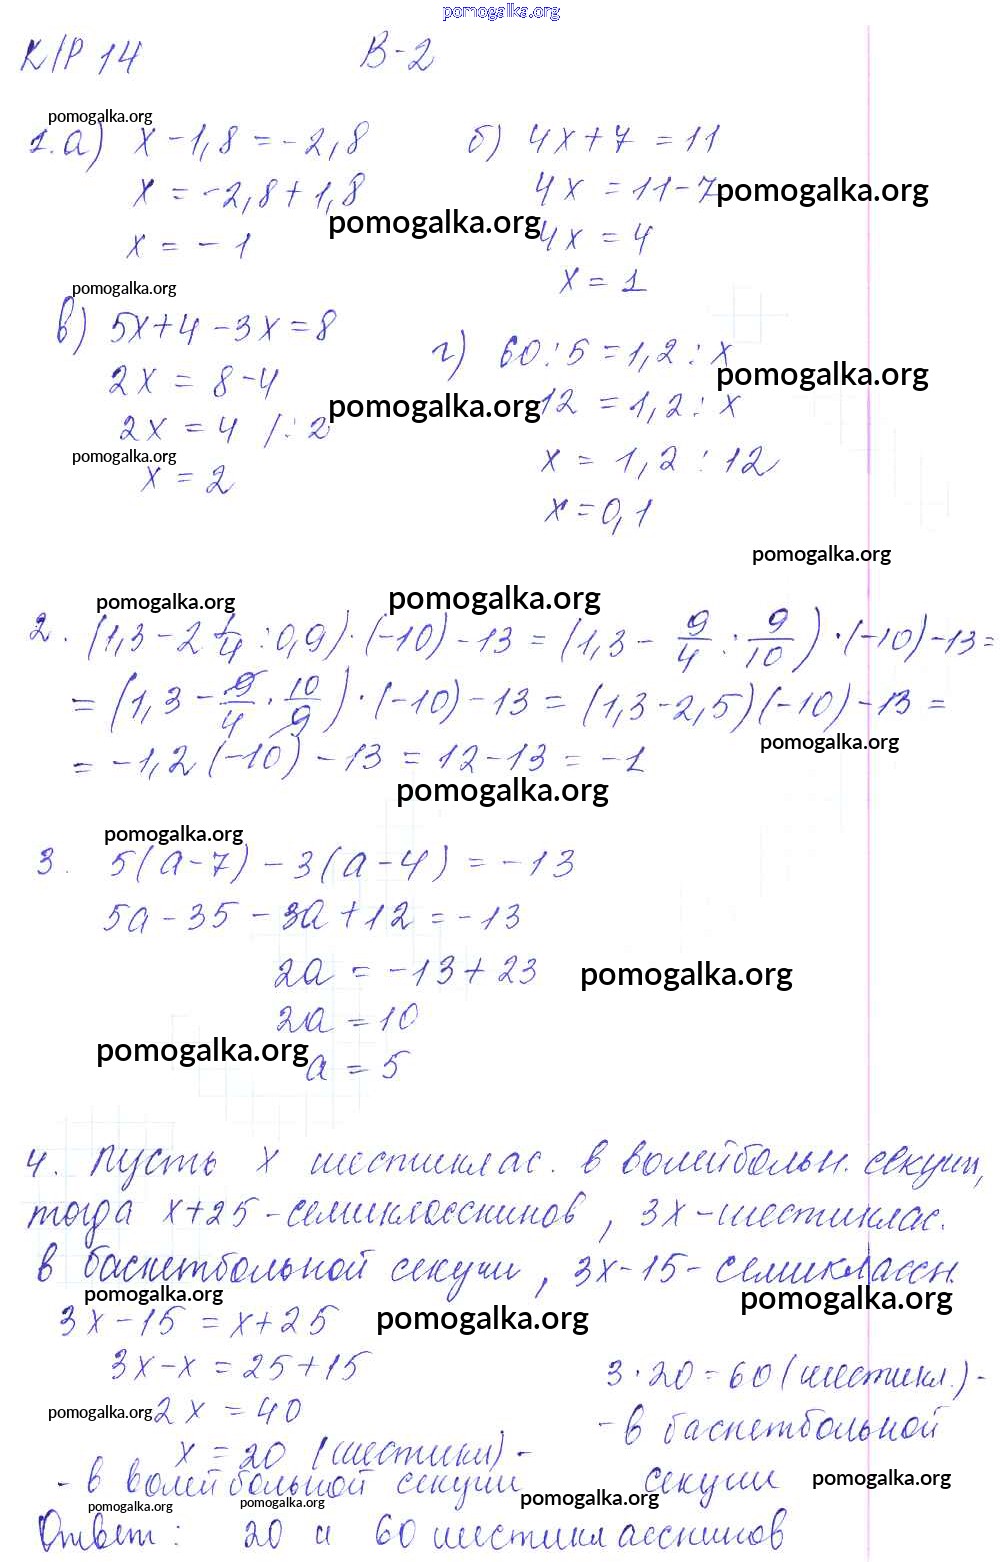 pomogalka.org
К/Р 14 В-2
pomogalka.org
1. а) x - 1,8 = -2,8 б) 4x + 7 = 11
x = -2,8 + 1,8 4x = 11 - 7 pomogalka.org
pomogalka.org
x = -1 4x = 4
x = 1
pomogalka.org
в) 5x + 4 - 3x = 8 г) 60 : 5 = 1,2 : x
pomogalka.org
2x = 8 - 4 12 = 1,2 : x
pomogalka.org
2x = 4 /: 2 x = 1,2 : 12
pomogalka.org
x = 2 x = 0,1
pomogalka.org
pomogalka.org pomogalka.org
2. (1,3 - 2 1/4 : 0,9) · (-10) - 13 = (1,3 - 9/4 : 9/10) · (-10) - 13 =
= (1,3 - 9/4 · 10/9) · (-10) - 13 = (1,3 - 2,5)(-10) - 13 =
pomogalka.org
= -1,2 (-10) - 13 = 12 - 13 = -1
pomogalka.org
pomogalka.org
3. 5(a - 7) - 3(a - 4) = -13
5a - 35 - 3a + 12 = -13
2a = -13 + 23 pomogalka.org
2a = 10
pomogalka.org
a = 5
4. Пусть x шестиклас. в волейбольн. секции,
тогда x + 25 - семиклассников, 3x - шестиклас.
в баскетбольной секции, 3x - 15 - семиклассн.
pomogalka.org pomogalka.org pomogalka.org
3x - 15 = x + 25
3x - x = 25 + 15 3 · 20 = 60 (шестикл.) -
pomogalka.org 2x = 40 - в баскетбольной
x = 20 (шестикл) - секции pomogalka.org
- в волейбольной секции
pomogalka.org pomogalka.org pomogalka.org
Ответ: 20 и 60 шестиклассников